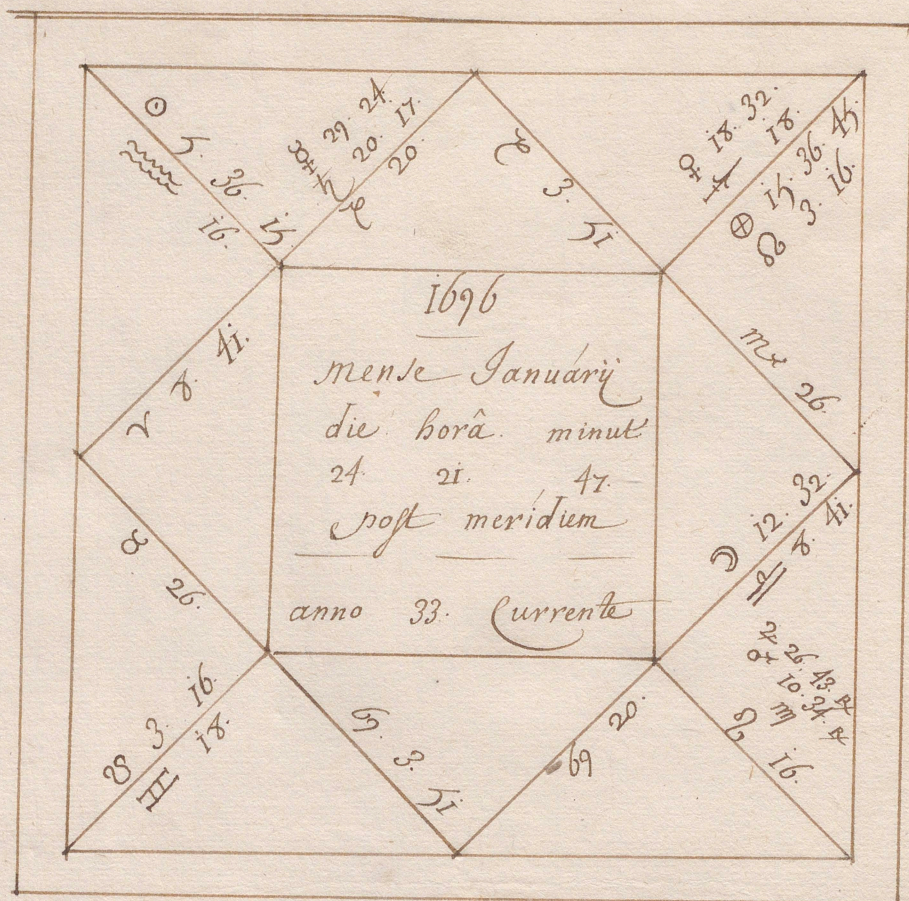 ☉ 5. 36. 15
♒ 16.
29 24.
♄ 20. 17.
♑ 20.
♑ 3. 51
♀ 18. 32.
♐ 18.
⊕ 15. 36. 45
☊ 3. 16.
♏ 26.
☽ 12. 32.
♎ 8. 41.
26. 43. ℞
10. 34. ℞
♍
♌ 16.
♋ 20.
♋ 3. 51
♊ 18.
☋ 3. 16.
♉ 26.
♈ 8. 41.
1696
Mense Januárÿ
die horâ minut
24. 21. 47.
post meridiem
anno 33. Currente